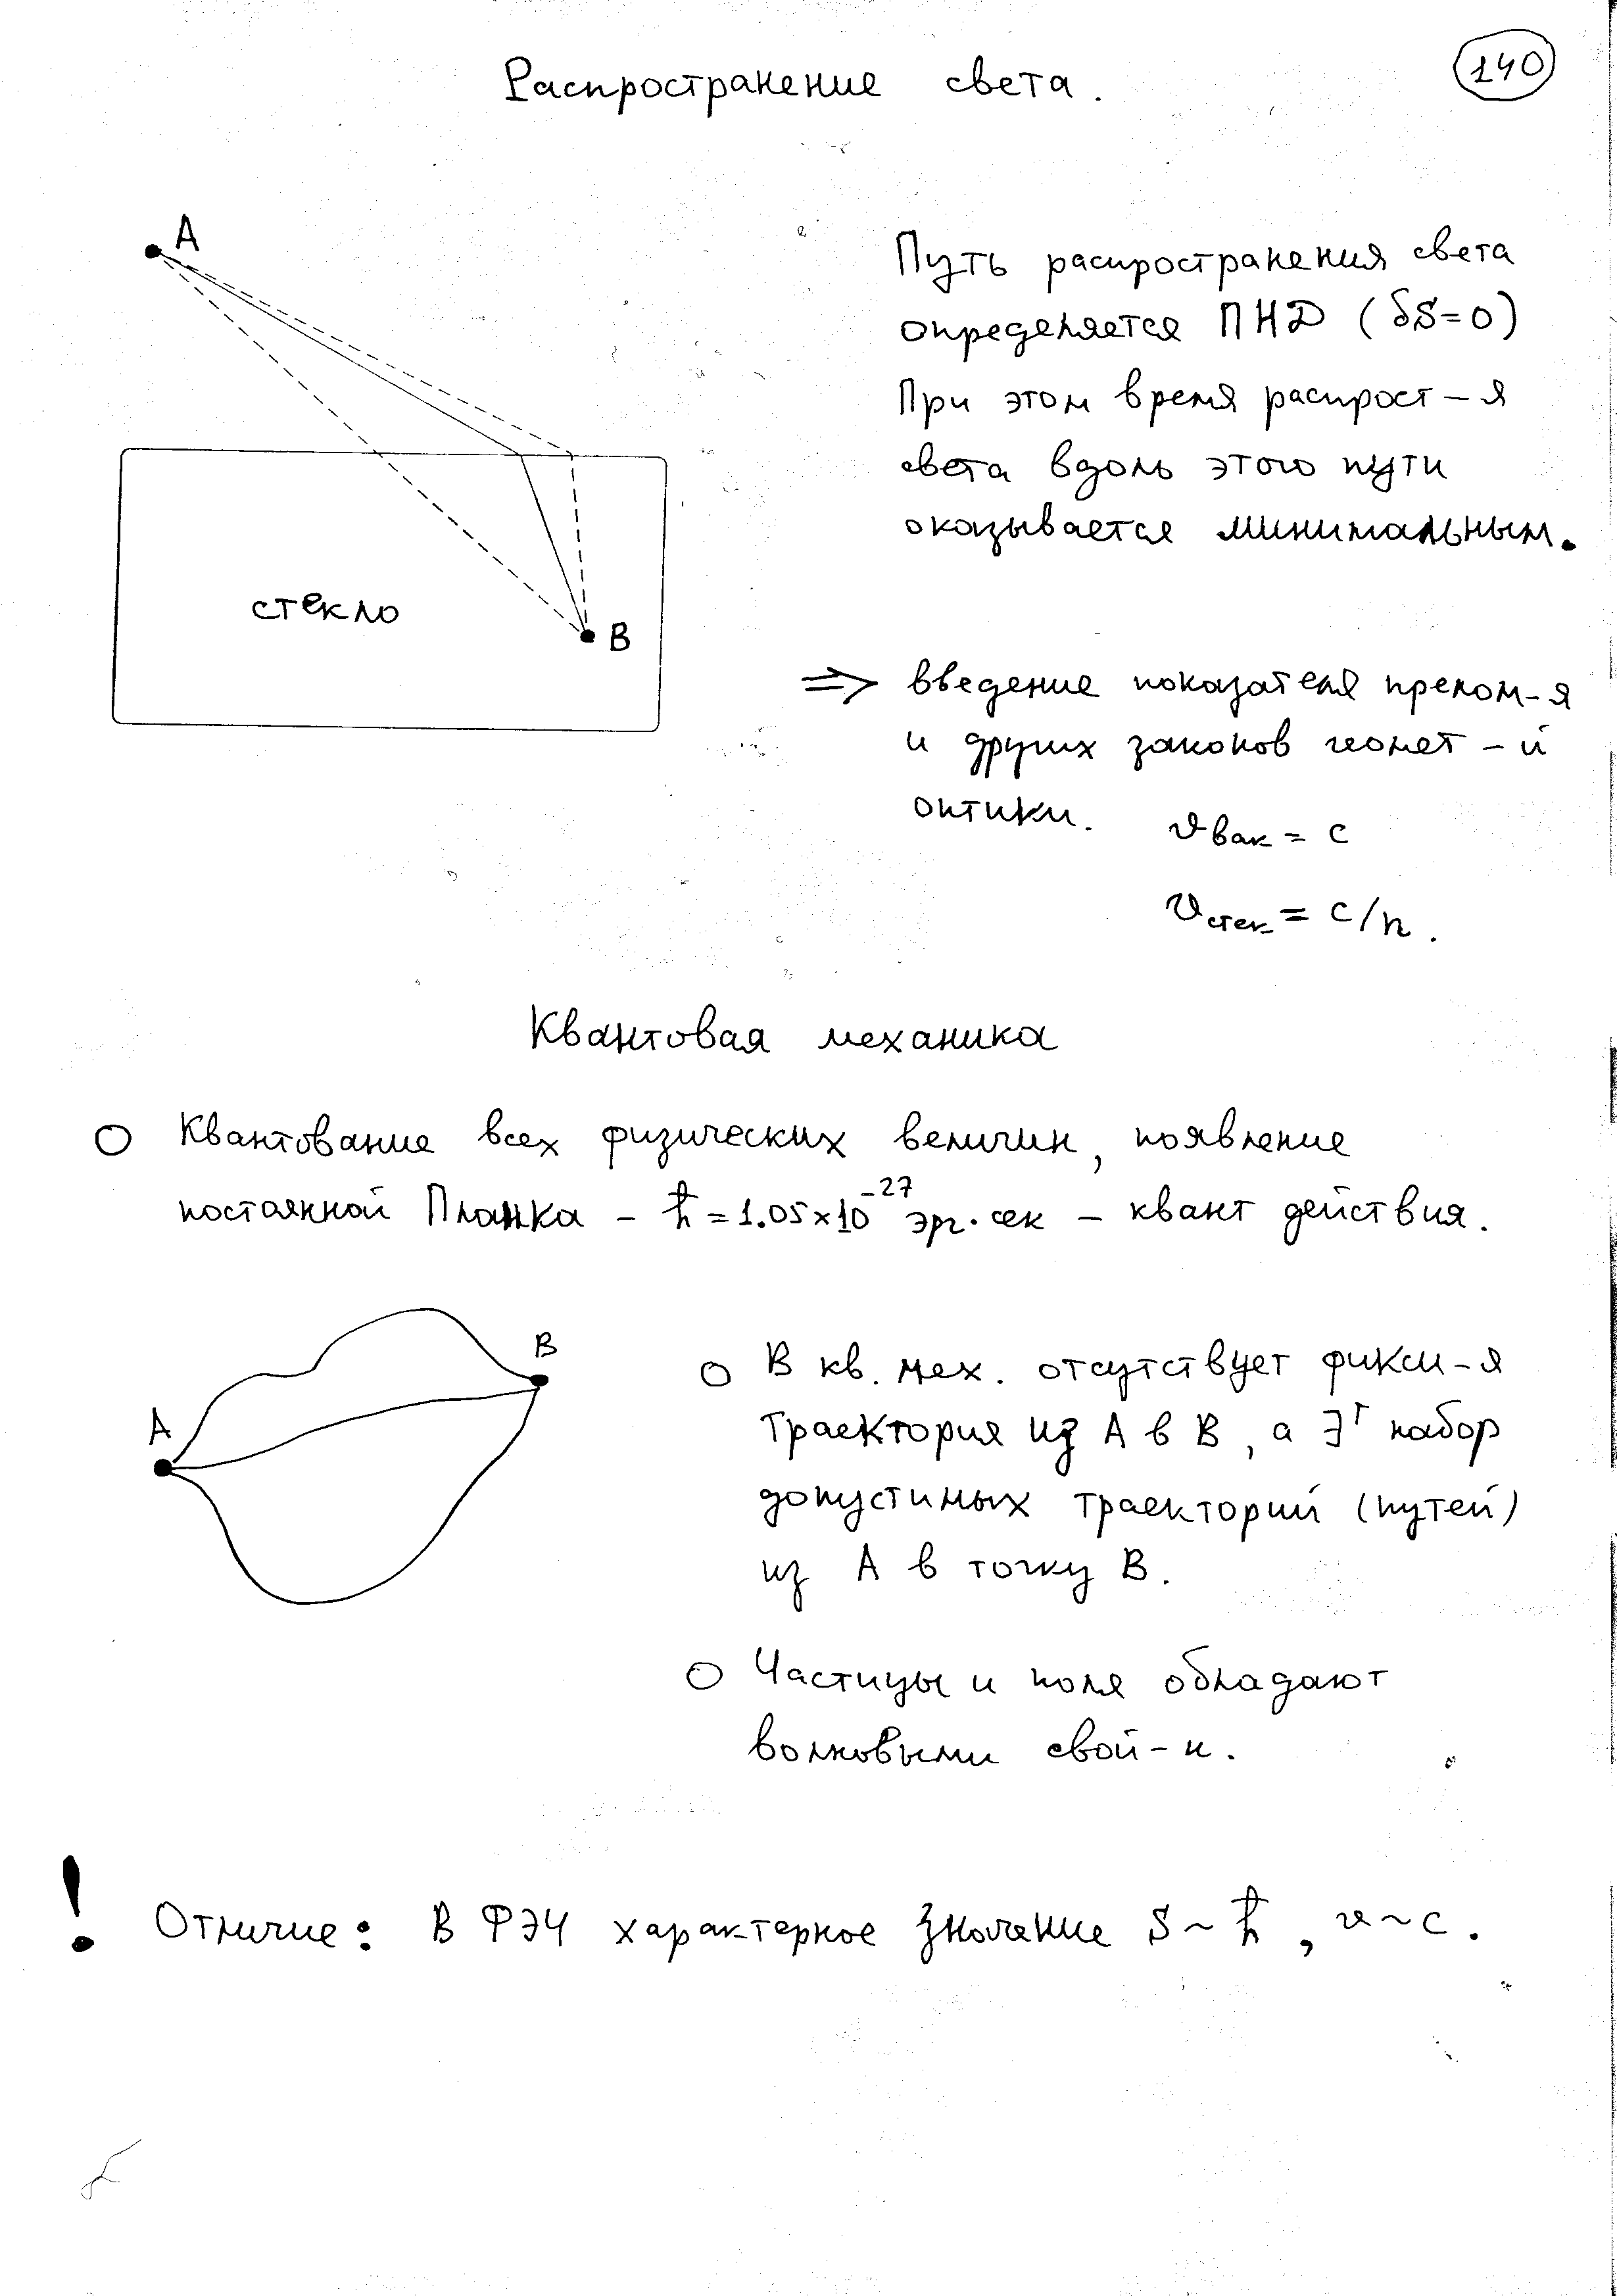 Распространение света.
140
A
Путь распространения света
определяется ПНД (δS=0)
При этом время распрост-я
света вдоль этого пути
оказывается минимальным.
стекло
B
⇒ введение показателя прелом-я
и других законов геомет-й
оптики.
υвак = c
υстек = c/n.
Квантовая механика
○ Квантование всех физических величин, появление
постоянной Планка – ħ = 1.05×10⁻²⁷ эрг·сек – квант действия.
A
B
○ В кв. мех. отсутствует фикси-я
траектория из A в B, а ∃т набор
допустимых траекторий (путей)
из A в точку B.
○ Частицы и поля обладают
волновыми свой-и.
! Отличие: В ФЭЧ характерное значение S ~ ħ, υ ~ c.